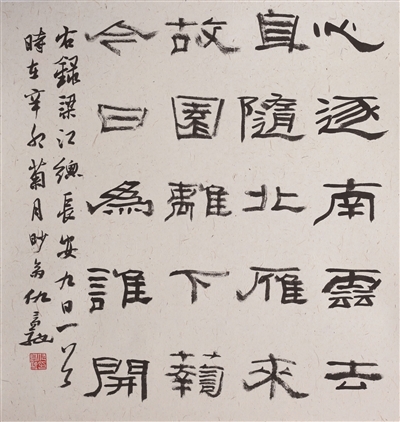 心逐南雲去
身隨北雁來
故園離下蘜
今日為誰開
右錄梁江總長安九日一首
時在辛卯菊月眇翁仇高馳